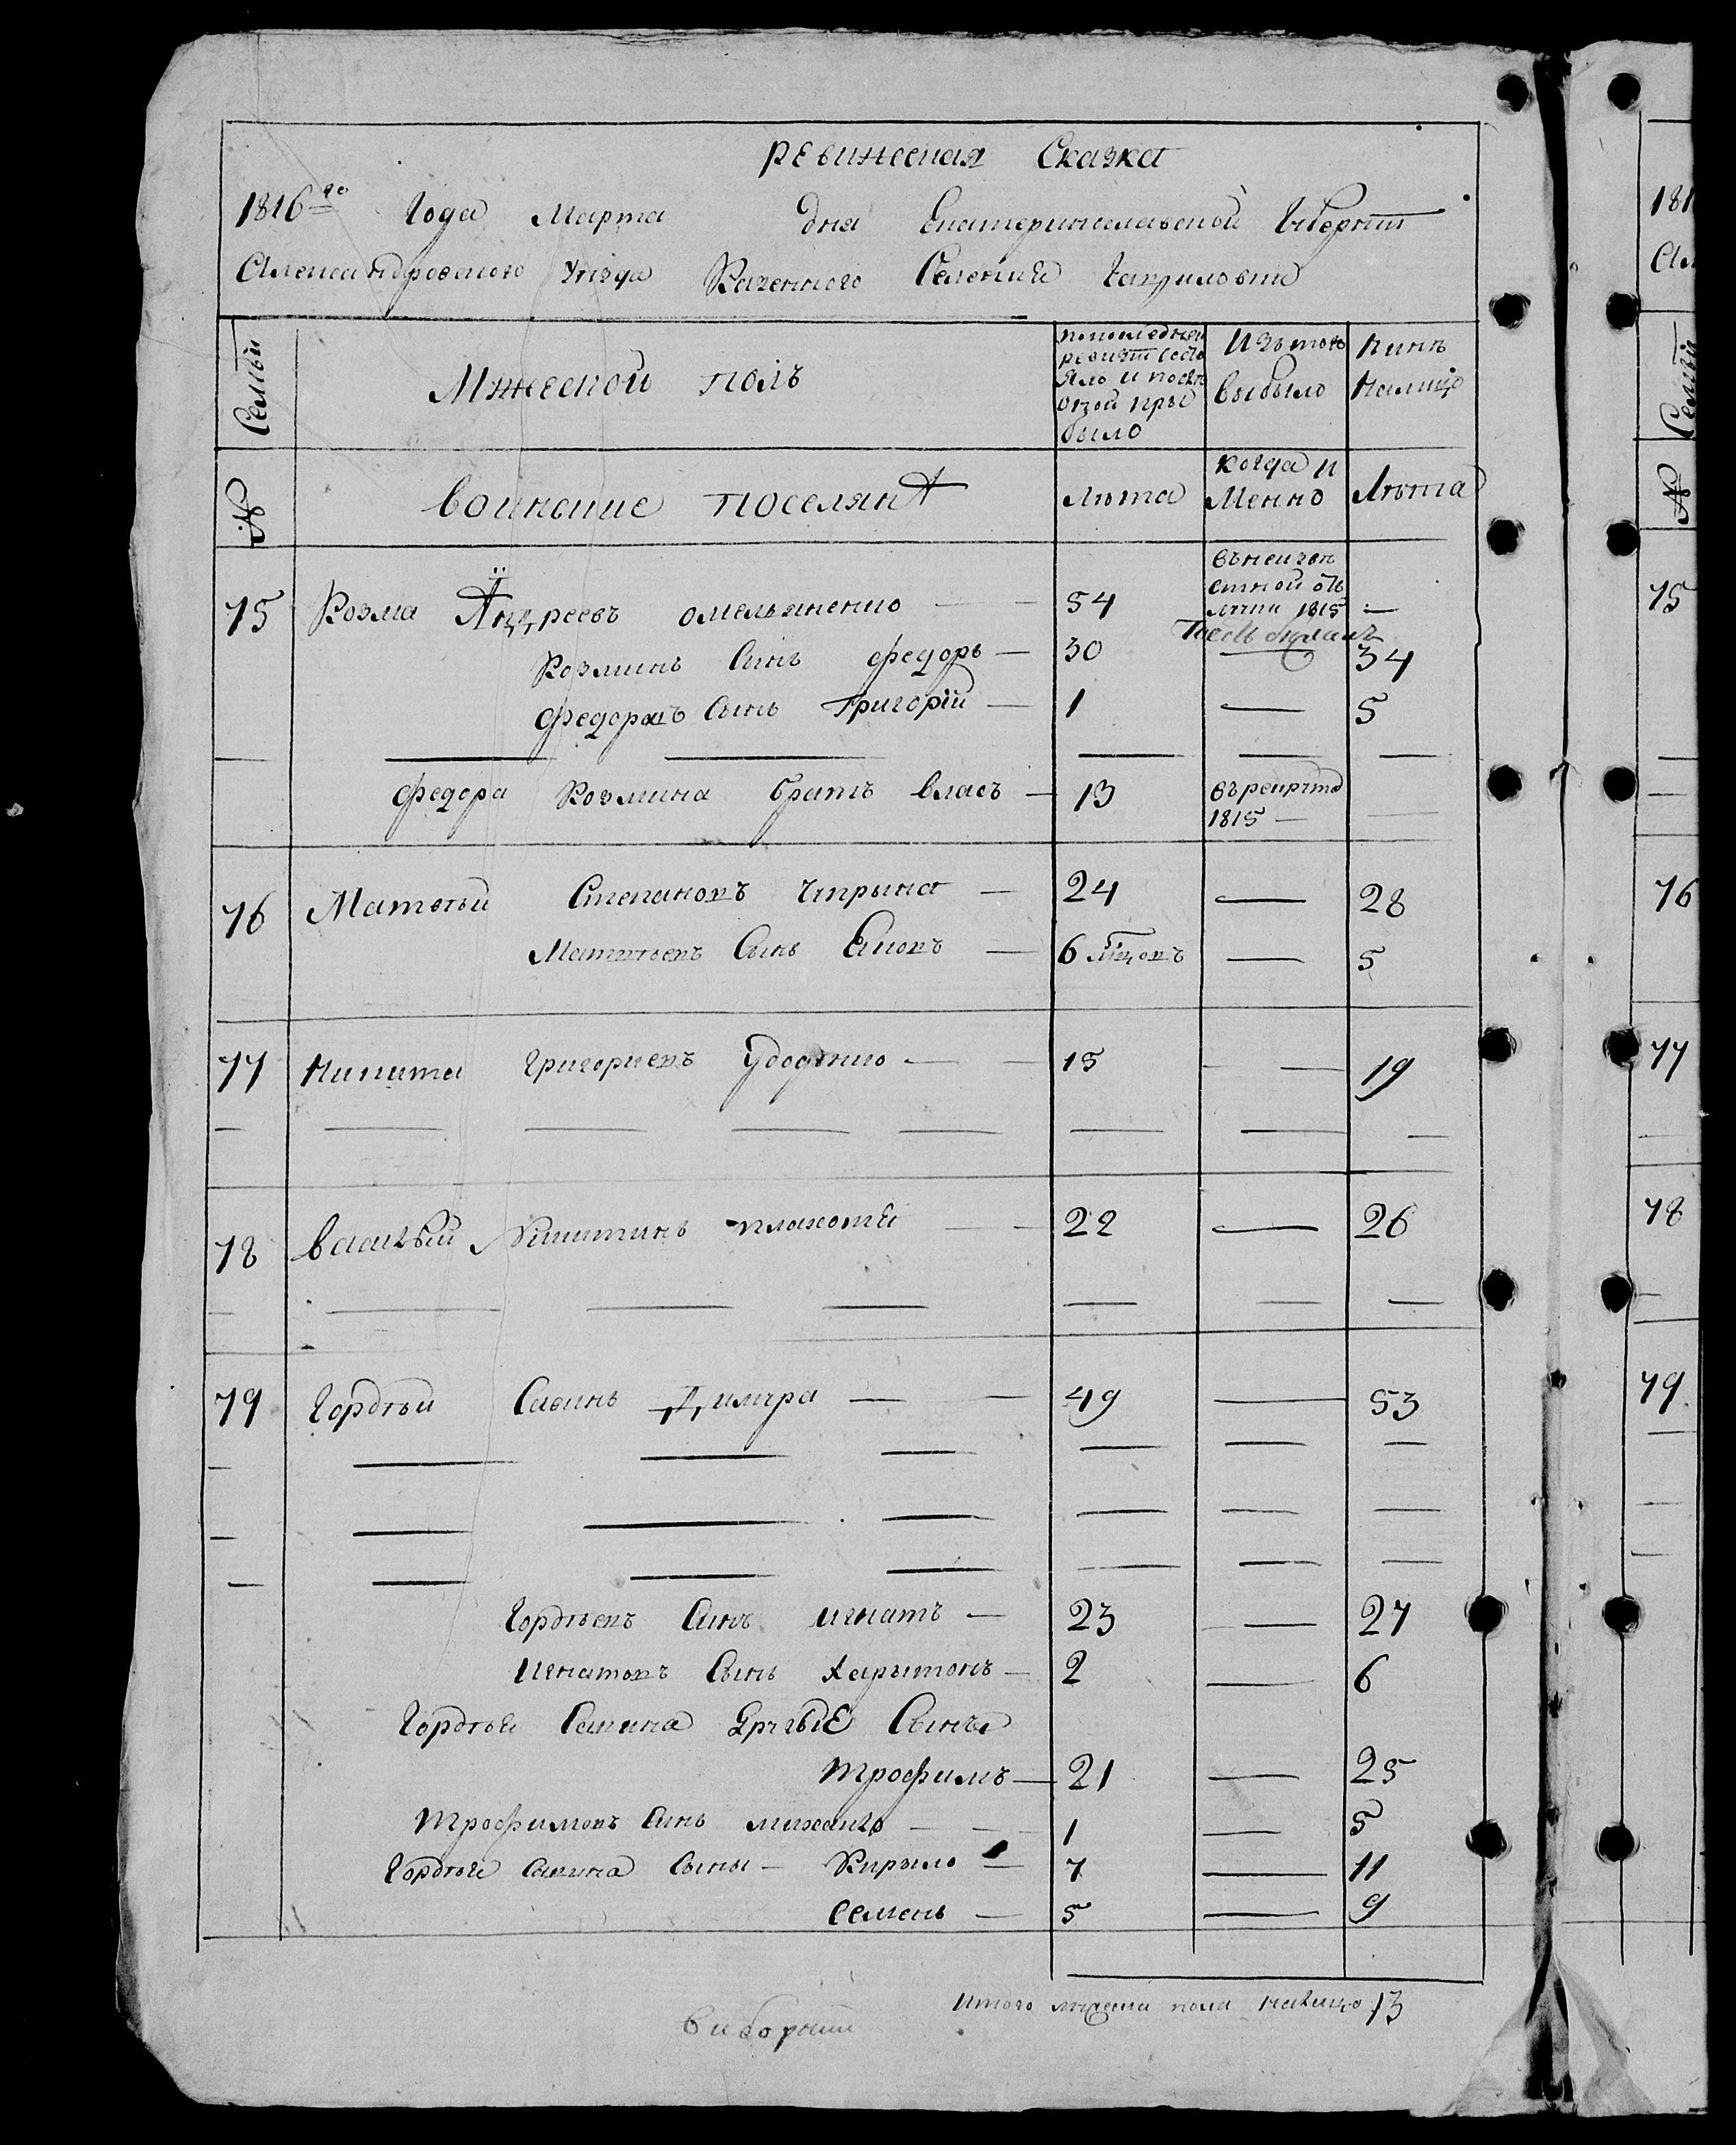 ревижеская Сказка
1816го Года Марта дня Екатеринославской Губернии
Александровского Уезда Казенного Селения Гаврыловки
Семьи
Мужеской полъ
по последней ревизии состояло и после оной прыбыло
Изъ того выбыло
ныне налицо
№
воинские поселяне
лета
когда именно
лета
75 Козма Андреевъ омельяненко — 54 въ неизвестной отлучки 1815 —
Козминъ Синъ федоръ — 30 — 34
федоровъ Сынъ Григорій — 1 — 5
федора Козмина братъ власъ — 13 въ рекруты 1815 —
76 Матвей Степановъ чупрына — 24 — 28
Матвеевъ Сынъ Яковъ — 6 м:цовъ — 5
77 Никита григориевъ удоденко — 15 — 19
78 василий Никитинъ плахотя — 22 — 26
79 Гордей Савинъ — 49 — 53
Гордеевъ Синъ игнатъ — 23 — 27
Игнатовъ Сынъ харытонъ — 2 — 6
Гордея Савина другые Сыны
трофимъ — 21 — 25
трофимовъ синъ михайло — 1 — 5
Гордея савина сыны — Кирыло — 7 — 11
семенъ — 5 — 9
итого мужеска пола налицо 13
виборний
181
75
76
77
78
79